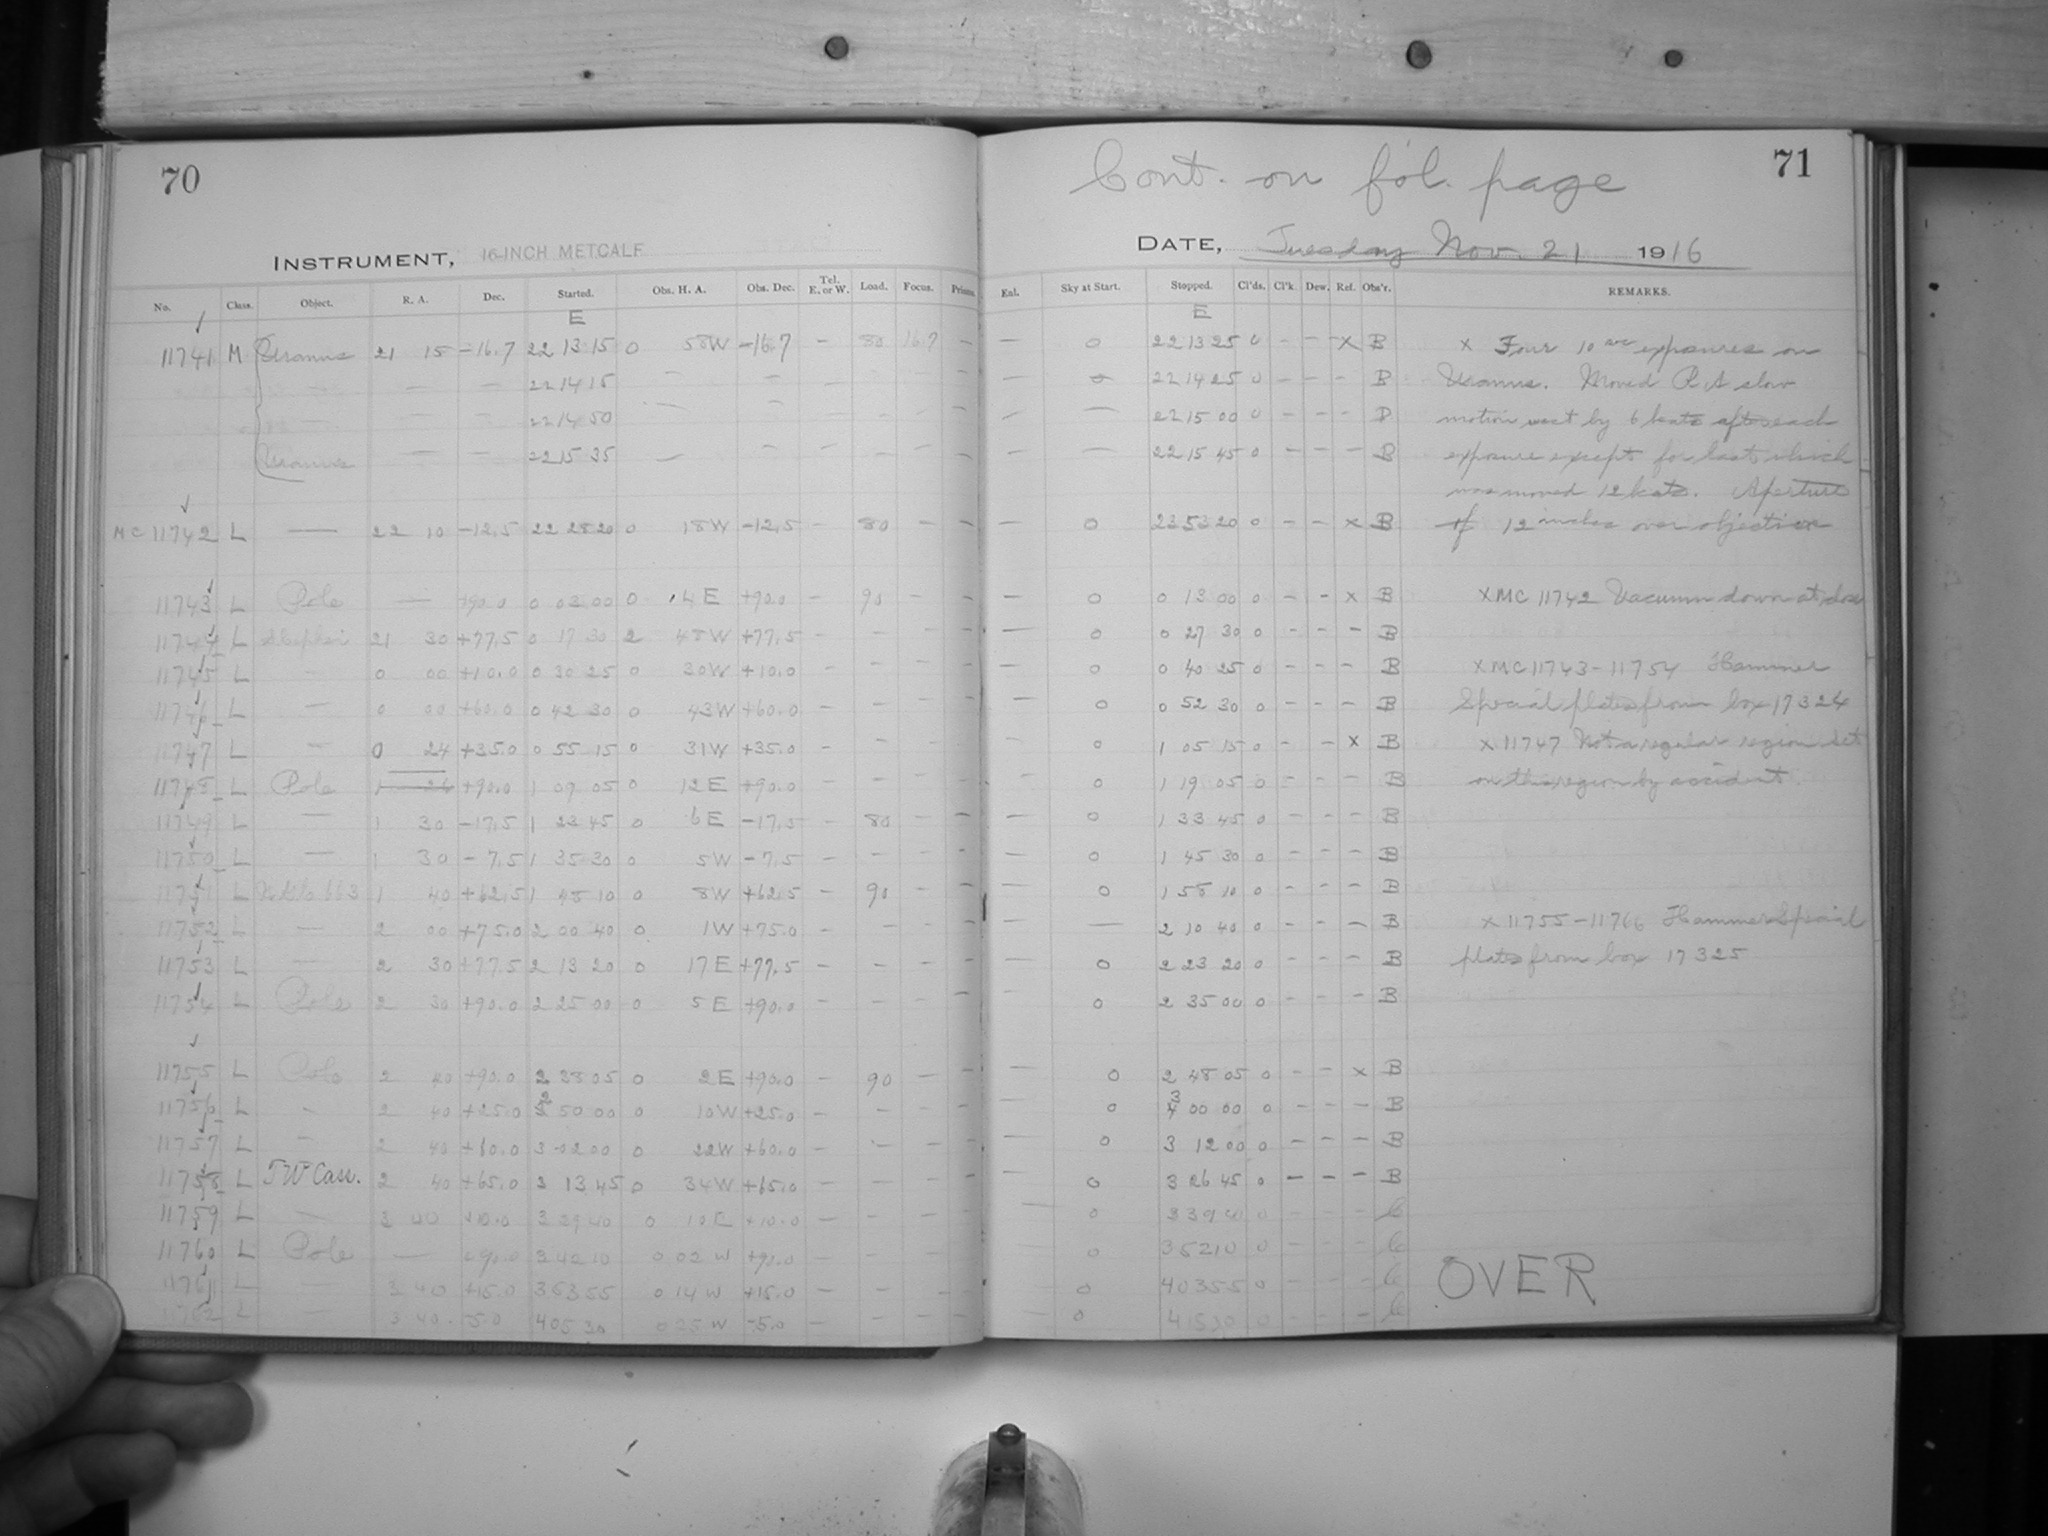 70
INSTRUMENT, 16-INCH METCALF
No. Class. Object. R. A. Dec. Started. Obs. H. A. Obs. Dec. Tel. E. or W. Load. Focus. Prisms.
E
11741 M Uranus 21 15 -16.7 22 13 15 0 58W -16.7 - 80 16.7 -
— — 22 14 15 — — - - - -
— — 22 14 50 — — - - - -
Uranus — — 22 15 35 — — - - - -
MC 11742 L — 22 10 -12.5 22 28 20 0 18W -12.5 - 80 - -
11743 L Pole — +90.0 0 03 00 0 14E +90.0 - 90 - -
11744 L 21 30 +77.5 0 17 30 2 48W +77.5 - - - -
11745 L — 0 00 +10.0 0 30 25 0 30W +10.0 - - - -
11746 L — 0 00 +60.0 0 42 30 0 43W +60.0 - - - -
11747 L — 0 24 +35.0 0 55 15 0 31W +35.0 - - - -
11748 L Pole 1 24 +90.0 1 09 05 0 12E +90.0 - - - -
11749 L — 1 30 -17.5 1 23 45 0 6E -17.5 - 80 - -
11750 L — 1 30 -7.5 1 35 30 0 5W -7.5 - - - -
11751 L 1 40 +62.5 1 48 10 0 8W +62.5 - 90 - -
11752 L — 2 00 +75.0 2 00 40 0 1W +75.0 - - - -
11753 L — 2 30 +77.5 2 13 20 0 17E +77.5 - - - -
11754 L Pole 2 30 +90.0 2 25 00 0 5E +90.0 - - - -
11755 L Pole 2 40 +90.0 2 38 05 0 2E +90.0 - 90 - -
11756 L - 2 40 +25.0 2 50 00 0 10W +25.0 - - - -
11757 L - 2 40 +60.0 3 02 00 0 22W +60.0 - - - -
11758 L TW Cass. 2 40 +65.0 3 13 45 0 34W +65.0 - - - -
11759 L — 3 40 +10.0 3 29 40 0 10E +10.0 - - - -
11760 L Pole — +90.0 3 42 10 0 02 W +90.0 - - - -
11761 L — 3 40 +15.0 3 53 55 0 14 W +15.0 - - - -
11762 L — 3 40 -5.0 4 05 30 0 25 W -5.0 - - - -
Cont. on fol. page
71
DATE, Tuesday Nov. 21 1916
Enl. Sky at Start. Stopped. Cl'ds. Cl'k. Dew. Ref. Obs'r. REMARKS.
E
— 0 22 13 25 0 - - x B x Four 10 sec exposures on
— 0 22 14 25 0 - - - B Uranus. Moved R A slow
— — 22 15 00 0 - - - B motion west by 6 beats after each
— — 22 15 45 0 - - - B exposure except for last which
was moved 12 beats. Aperture
— 0 23 53 20 0 - - x B of 12 inches over objective
— 0 0 13 00 0 - - x B x MC 11742 Vacuum down at close
— 0 0 27 30 0 - - - B
— 0 0 40 25 0 - - - B x MC 11743-11754 Hammer
— 0 0 52 30 0 - - - B Special plates from box 17324
— 0 1 05 15 0 - - x B x 11747 Not a regular region Set
— 0 1 19 05 0 - - - B on this region by accident.
— 0 1 33 45 0 - - - B
— 0 1 45 30 0 - - - B
— 0 1 58 10 0 - - - B
— — 2 10 40 0 - - - B x 11755-11766 Hammer Special
— 0 2 23 20 0 - - - B plates from box 17325
— 0 2 35 00 0 - - - B
— 0 2 48 05 0 - - x B
— 0 3 00 00 0 - - - B
— 0 3 12 00 0 - - - B
— 0 3 26 45 0 - - - B
— 0 3 39 40 0 - - - C
— 0 3 52 10 0 - - - C
— 0 4 03 55 0 - - - C
— 0 4 15 30 0 - - - C
OVER